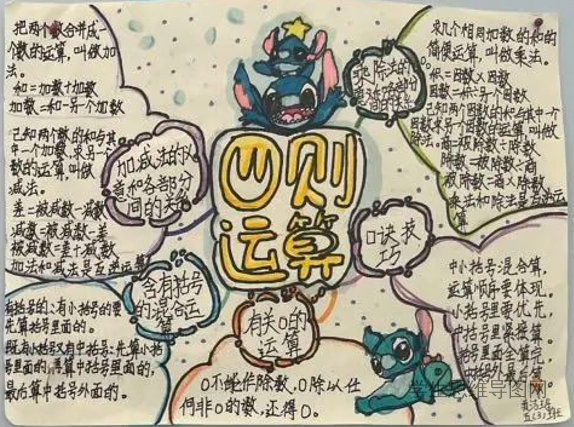 把两个数合并成一
个数的运算,叫做加
法。
和=加数+加数
加数=和-另一个加数
已知两个数的和与其
中一个加数,求另一个
数的运算,叫做
减法。
差=被减数-减数
减数=被减数-差
被减数=差+减数
加法和减法是互逆运算
加减法的义
意和各部分
间的关系
四则
运算
乘除法的
求几个相同加数的和的
简便运算,叫做乘法。
积=因数×因数
因数=积÷另一个因数
已知两个因数的积与其中一个
因数,求另一个因数的运算,叫做
除法。商=被除数÷除数
除数=被除数÷商
被除数=商×除数
乘法和除法是互逆运算
口诀技
巧
中小括号混合算,
运算顺序要体现。
小括号里要优先,
中括号里紧接算。
括号里面全算完,
中括号外最后算。
含有括号
的混合运
算
有括号的:有小括号的要
先算括号里面的。
既有小括号又有中括号:先算小括
号里面的,再算中括号里面的,
最后算中括号外面的。
有关0的
运算
0不能作除数,0除以任
何非0的数,还得0。
学生思维导图网